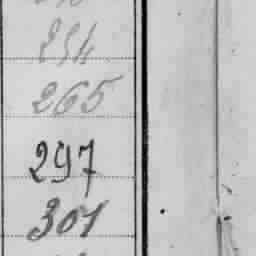 254
265
297
301